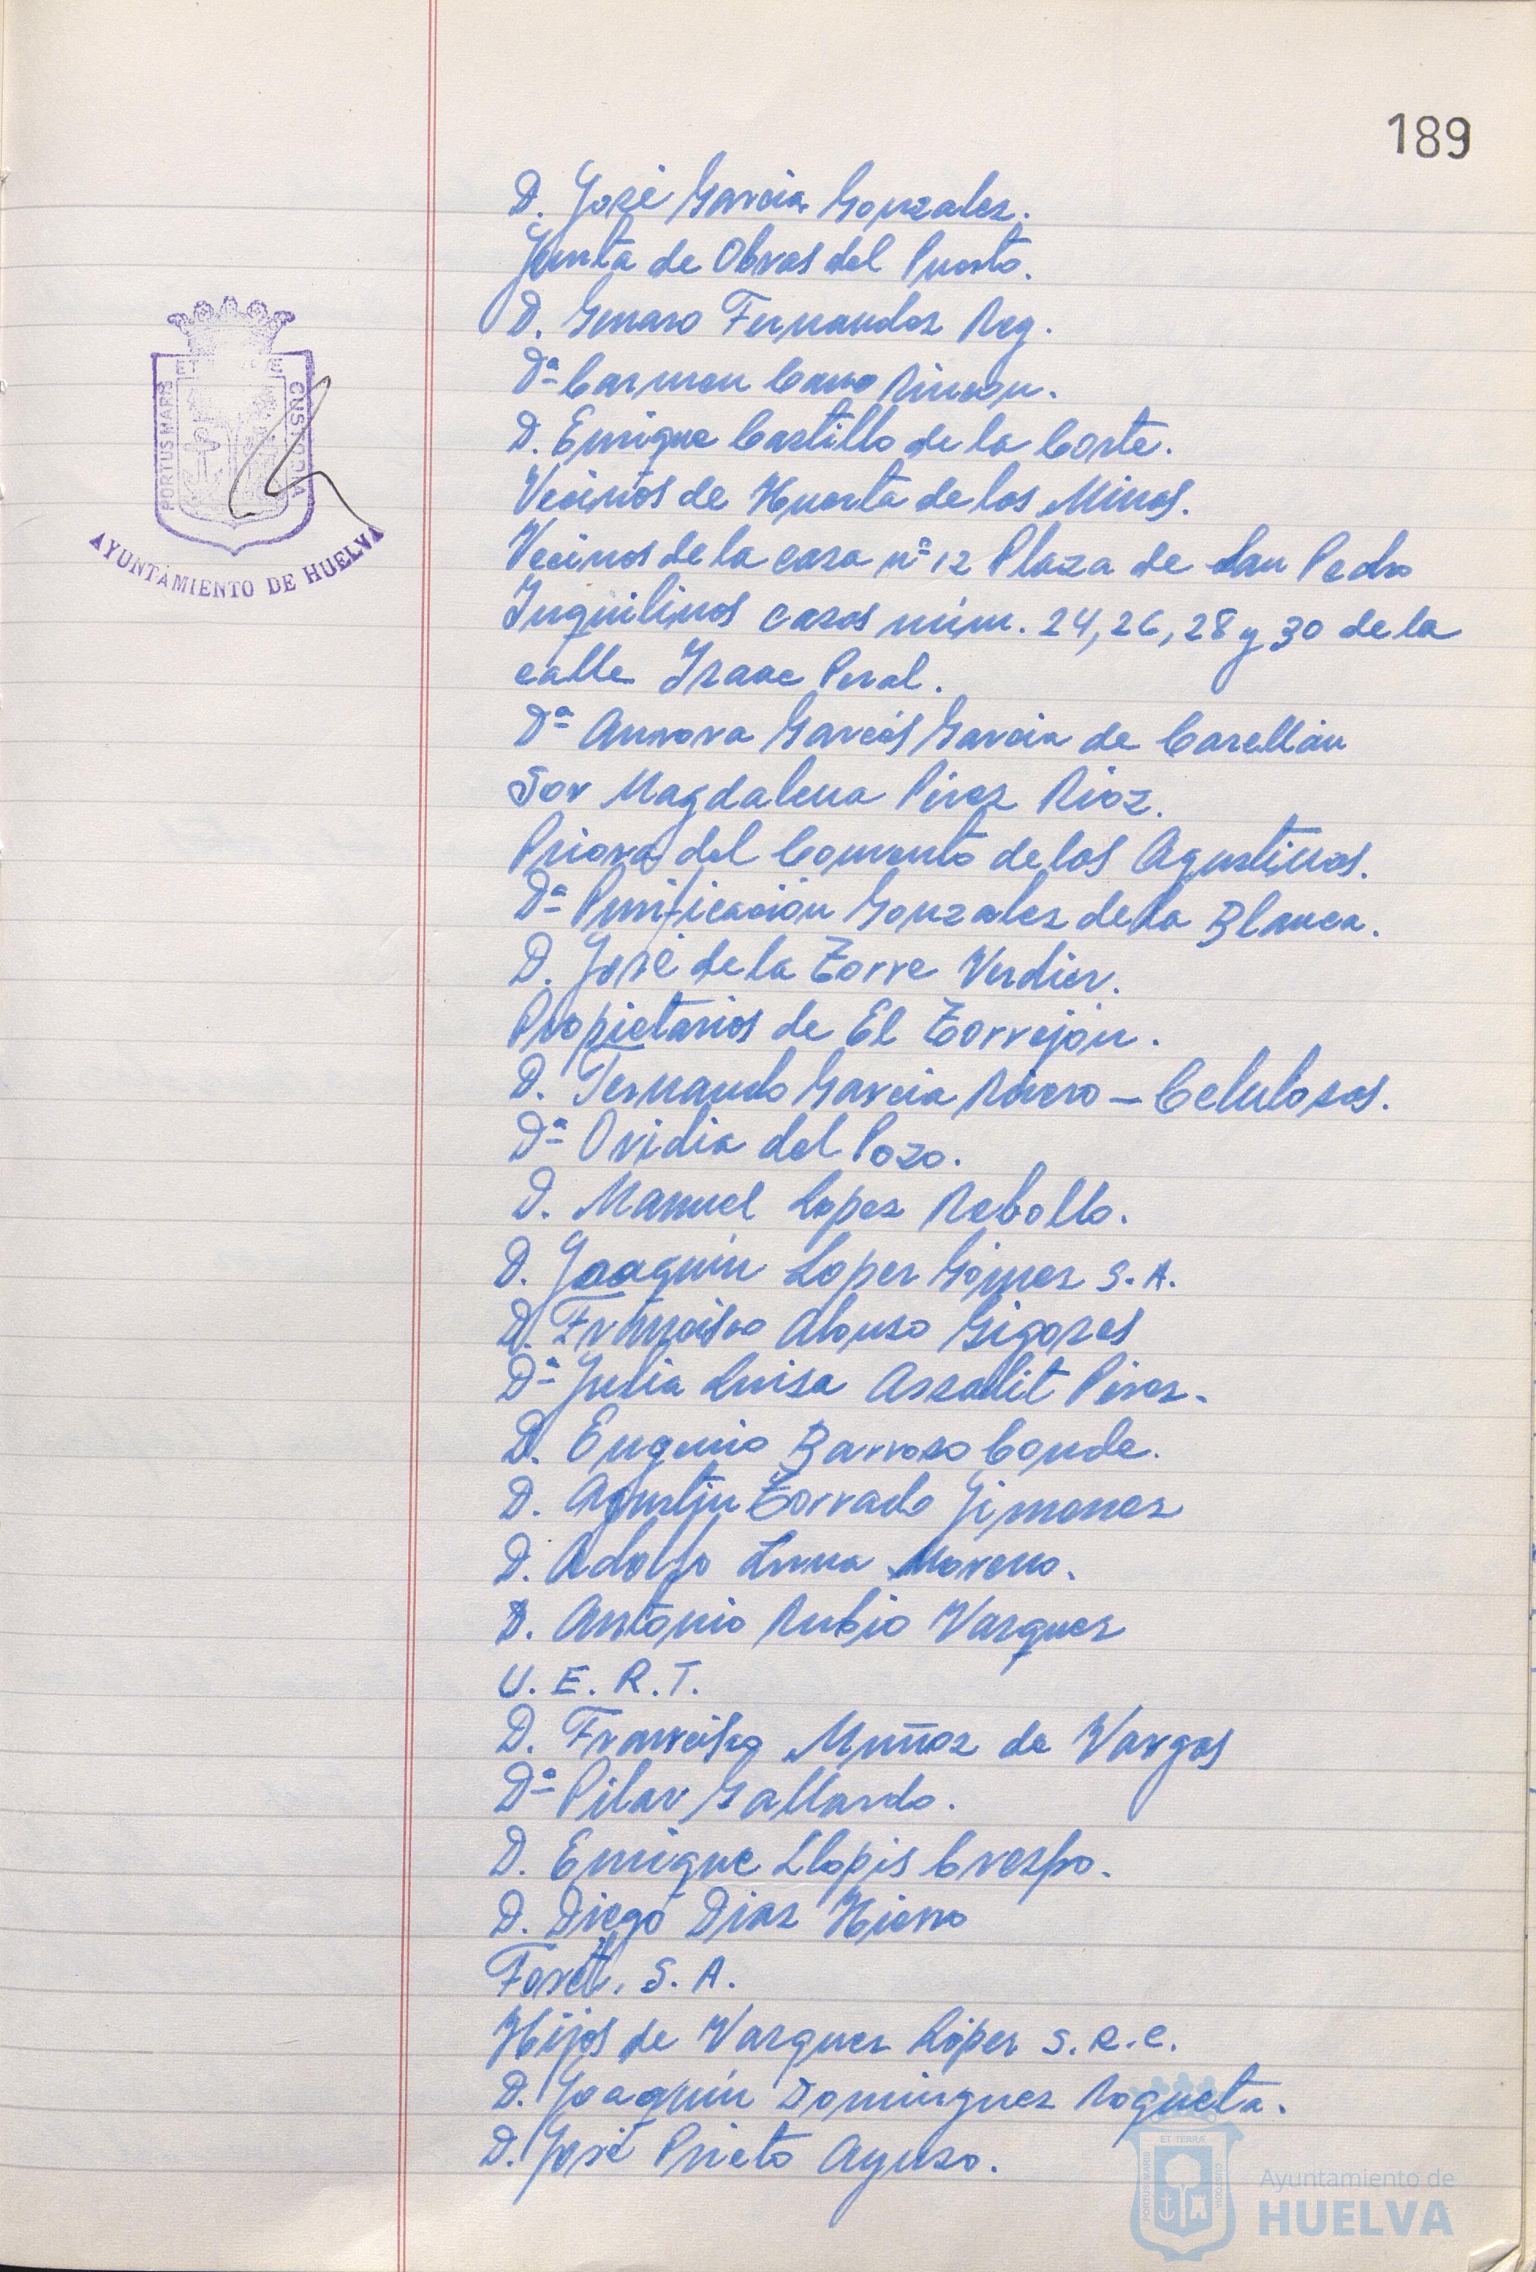 189
D. José Garcia Gonzalez.
Junta de Obras del Puerto.
D. Genaro Fernandez Rey.
Dª Carmen Cano Rincon.
D. Enrique Castillo de la Corte.
Vecinos de Huerta de las Minas.
Vecinos de la casa nº 12 Plaza de San Pedro
Inquilinos casas núm. 24, 26, 28 y 30 de la
calle Isaac Peral.
Dª Aurora Garcés Garcia de Casellán
Sor Magdalena Pérez
Priora del Convento de las Agustinas.
Dª Purificación Gonzalez de la Blanca.
D. José de la Torre Verdier.
Propietarios de El Torrejón.
D. Fernando Garcia Rivero - Celulosas.
Dª Ovidia del Pozo.
D. Manuel Lopez Rebollo.
D. Joaquín Lopez Gómez S.A.
D. Francisco Alonso Gigores
Dª Julia Luisa Assalit Pérez.
D. Eugenio Barroso Conde.
D. Agustín Torrado Jimenez
D. Adolfo Luna Moreno.
D. Antonio Rubio Vazquez
U. E. R. T.
D. Francisco Muñoz de Vargas
Dª Pilar Gallardo.
D. Enrique Llopis Crespo.
D. Diego Diaz Hierro
Foret, S. A.
Hijos de Vazquez López S. R. C.
D. Joaquín Dominguez Roqueta.
D. José Prieto Ayuso.
PORTUS MARIS ET TERRAE CUSTODIA
AYUNTAMIENTO DE HUELVA
PORTUS MARIS ET TERRAE CUSTODIA
Ayuntamiento de
HUELVA